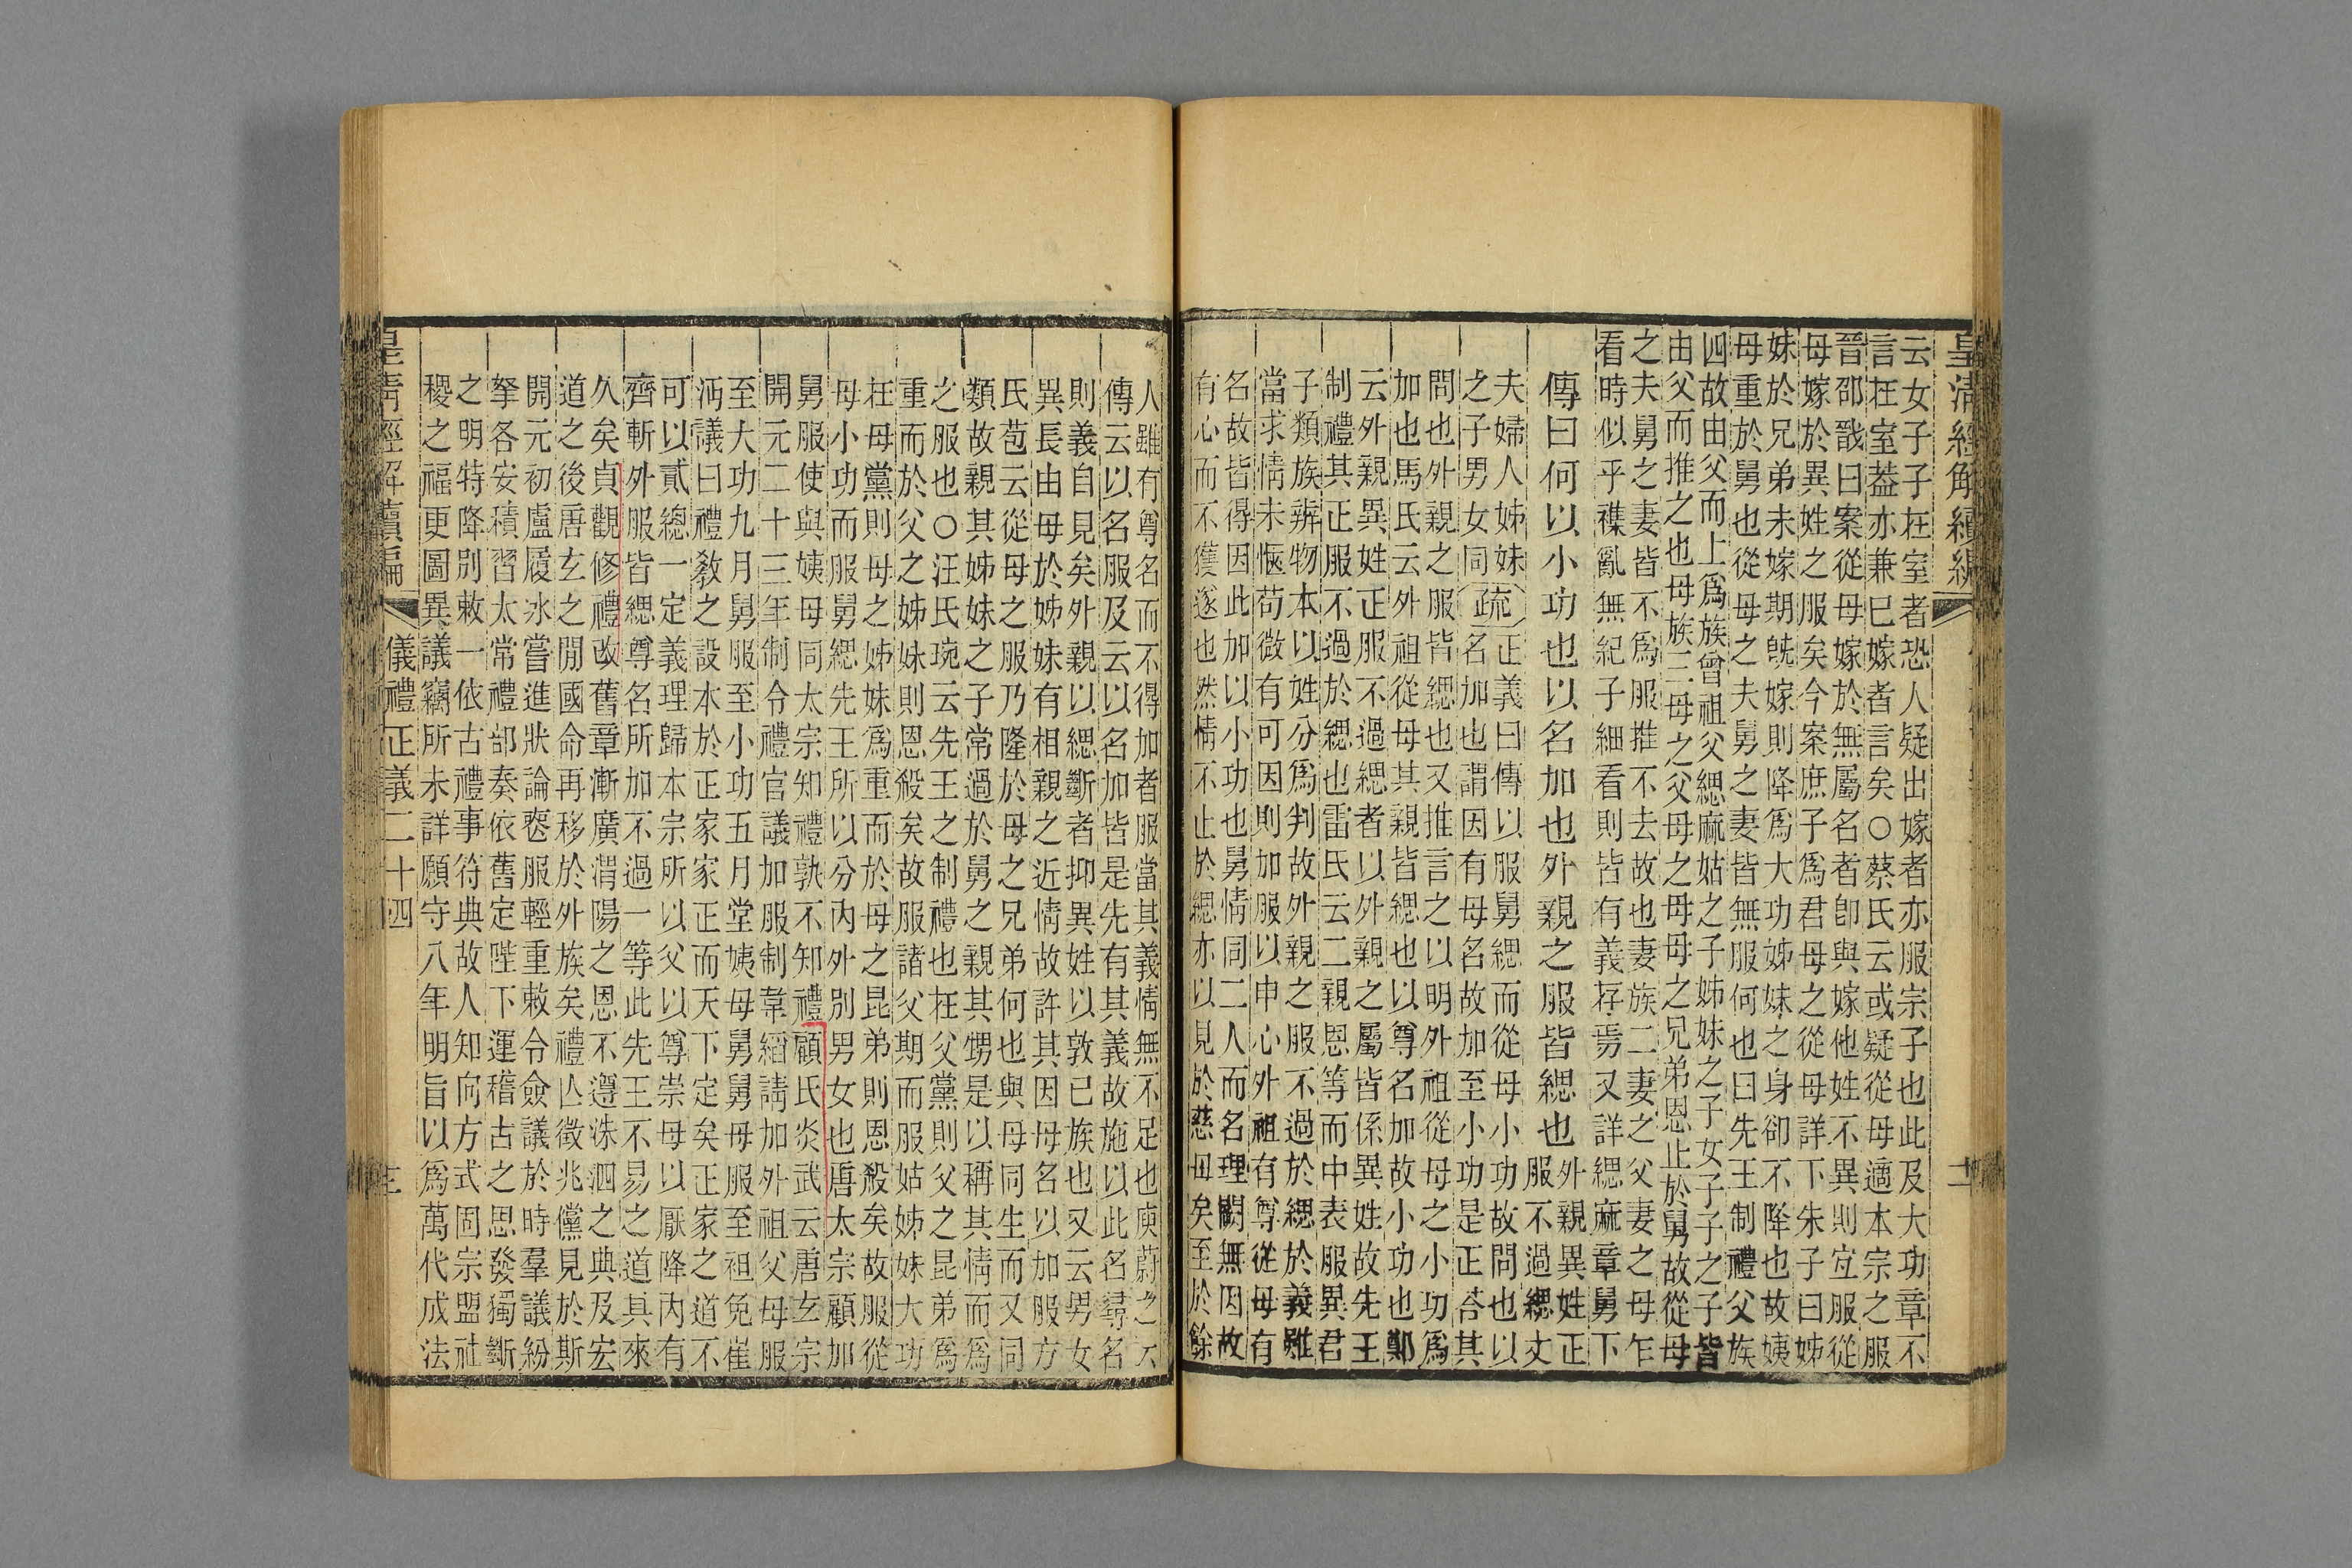 皇清經解續編
云女子子在室者恐人疑出嫁者亦服宗子也此及大功章不
言在室葢亦兼已嫁者言矣○蔡氏云或疑從母適本宗之服
晉邵戩曰案從母嫁於無屬名者卽與嫁他姓不異則宐服從
母嫁於異姓之服矣今案庶子爲君母之從母詳下朱子曰姊
妹於兄弟未嫁期旣嫁則降爲大功姊妹之身卻不降也故姨
母重於舅也從母之夫舅之妻皆無服何也曰先王制禮父族
四故由父而上爲族曾祖父緦麻姑之子姊妹之子女子子之子皆
由父而推之也母族三母之父母之母母之兄弟恩止於舅故從母
之夫舅之妻皆不爲服推不去故也妻族二妻之父妻之母乍
看時似乎襍亂無紀子細看則皆有義存焉又詳緦麻章舅下
傳曰何以小功也以名加也外親之服皆緦也
外親異姓正
服不過緦丈
夫婦人姊妹
之子男女同
疏
正義曰傳以服舅緦而從母小功故問也以
名加也謂因有母名故加至小功是正荅其
問也外親之服皆緦也又推言之以明外祖從母之小功爲
加也馬氏云外祖從母其親皆緦也以尊名加故小功也鄭
云外親異姓正服不過緦者以外親之屬皆係異姓故先王
制禮其正服不過於緦也雷氏云二親恩等而中表服異君
子類族辨物本以姓分爲判故外親之服不過於緦於義雖
當求情未愜苟微有可因則加服以申心外祖有尊從母有
名故皆得因此加以小功也舅情同二人而名理闕無因故
有心而不獲遂也然情不止於緦亦以見於慈母矣至於餘
二
人雖有尊名而不得加者服當其義情無不足也庾蔚之云
傳云以名服及云以名加皆是先有其義故施以此名尋名
則義自見矣外親以緦斷者抑異姓以敦已族也又云男女
異長由母於姊妹有相親之近情故許其因母名以加服方
氏苞云從母之服乃隆於母之兄弟何也與母同生而又同
類故親其姊妹之子常過於舅之親其甥是以稱其情而爲
之服也○汪氏琬云先王之制禮也在父黨則父之昆弟爲
重而於父之姊妹則恩殺矣故服諸父期而服姑姊妹大功
在母黨則母之姊妹爲重而於母之昆弟則恩殺矣故服從
母小功而服舅緦先王所以分內外別男女也唐太宗顧加
舅服使與姨母同太宗知禮孰不知禮顧氏炎武云唐玄宗
開元二十三年制令禮官議加服制韋縚請加外祖父母服
至大功九月舅服至小功五月堂姨母舅舅母服至袒免崔
沔議曰禮敎之設本於正家家正而天下定矣正家之道不
可以貳總一定義理歸本宗所以父以尊崇母以厭降內有
齊斬外服皆緦尊名所加不過一等此先王不易之道其來
久矣貞觀修禮改舊章漸廣渭陽之恩不遵洙泗之典及宏
道之後唐玄之閒國命再移於外族矣禮亾徵兆儻見於斯
開元初盧履冰嘗進狀論喪服輕重敕令僉議於時羣議紛
拏各安積習太常禮部奏依舊定陛下運稽古之思發獨斷
之明特降別敕一依古禮事符典故人知向方式固宗盟社
稷之福更圖異議竊所未詳願守八年明旨以爲萬代成法
皇清經解續編
儀禮正義二十四
三